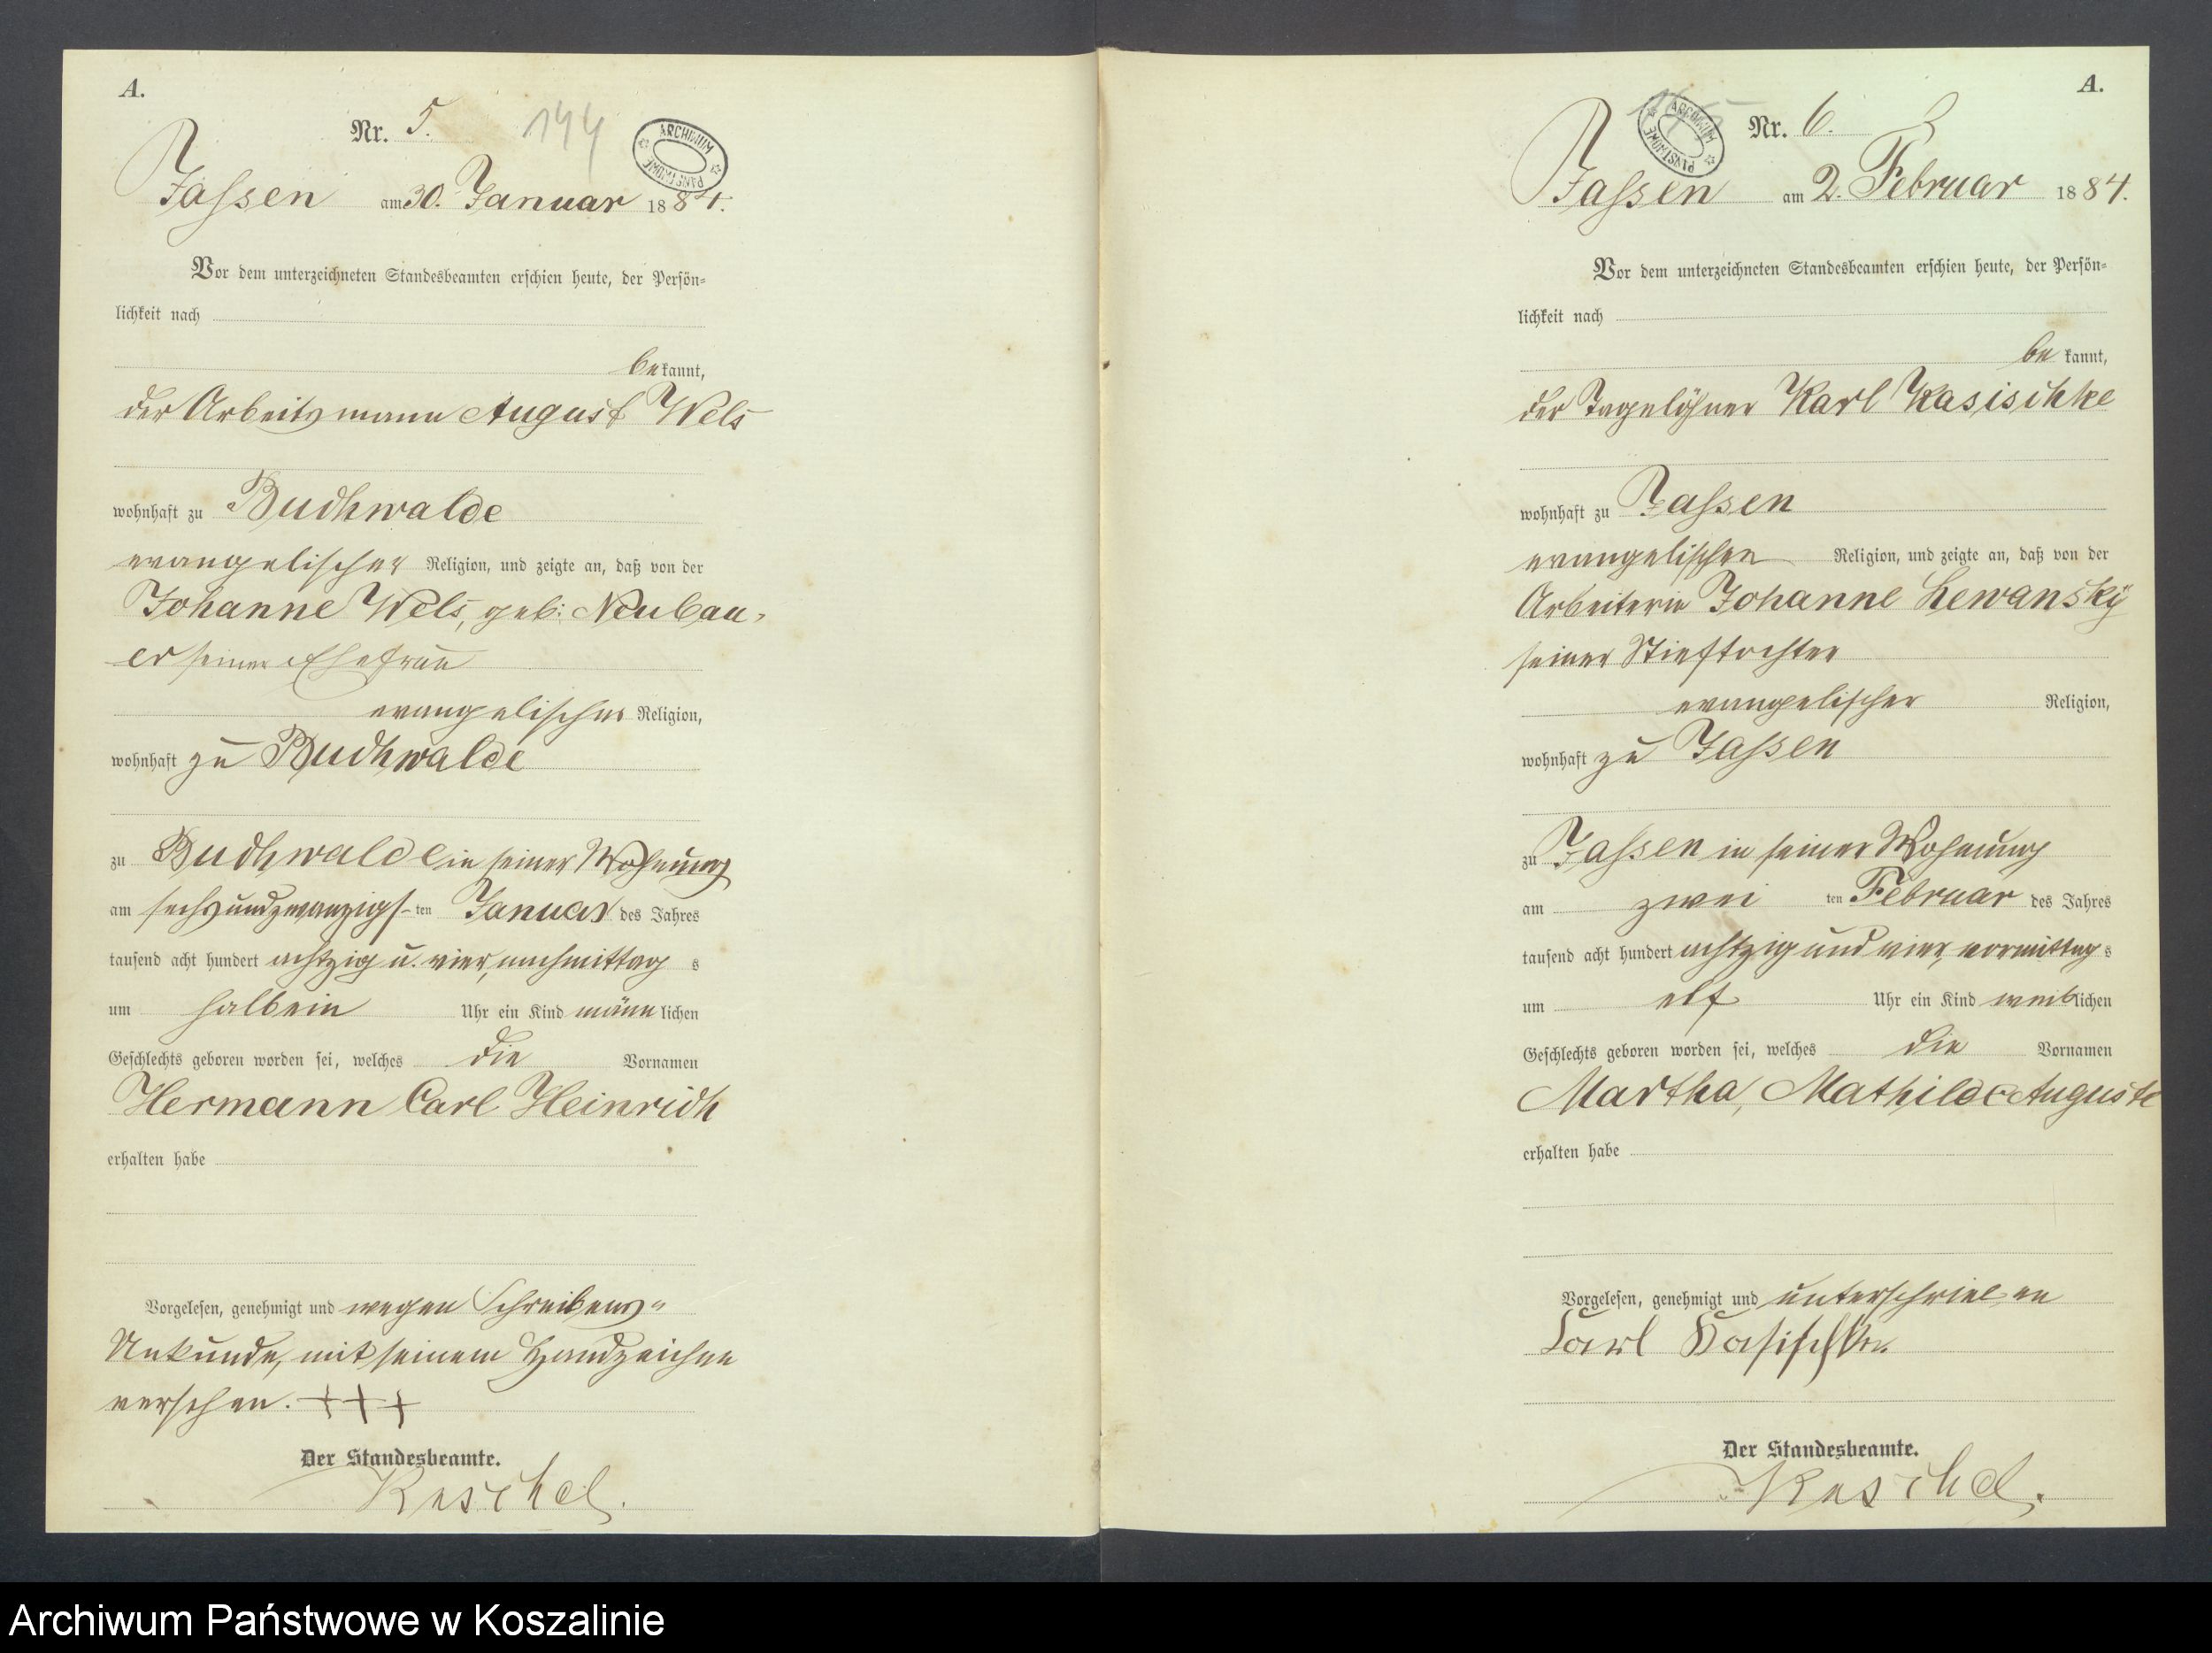 A.
Nr. 5. 144
ARCHIWUM PAŃSTWOWE
Jassen am 30. Januar 1884.
Vor dem unterzeichneten Standesbeamten erschien heute, der Persön-
lichkeit nach
bekannt,
der Arbeitsmann August Wels
wohnhaft zu Buchwalde
evangelischer Religion, und zeigte an, daß von der
Johanne Wels, geb: Neubau-
er seiner Ehefrau
evangelischer Religion,
wohnhaft zu Buchwalde
zu Buchwalde in seiner Wohnung
am sechsundzwanzigsten Januar des Jahres
tausend acht hundert achtzig u. vier, nachmittags
um halb ein Uhr ein Kind männlichen
Geschlechts geboren worden sei, welches die Vornamen
Hermann Carl Heinrich
erhalten habe
Vorgelesen, genehmigt und wegen Schreibens-
Unkunde, mit seinem Handzeichen
versehen. +++
Der Standesbeamte.
Reschel.
A.
ARCHIWUM PAŃSTWOWE
Nr. 6.
Jassen am 2. Februar 1884.
Vor dem unterzeichneten Standesbeamten erschien heute, der Persön-
lichkeit nach
bekannt,
der Tagelöhner Karl Kasischke
wohnhaft zu Jassen
evangelischen Religion, und zeigte an, daß von der
Arbeiterin Johanne Lewansky
seiner Stieftochter
evangelischer Religion,
wohnhaft zu Jassen
zu Jassen in seiner Wohnung
am zweiten Februar des Jahres
tausend acht hundert achtzig und vier, vormittags
um elf Uhr ein Kind weiblichen
Geschlechts geboren worden sei, welches die Vornamen
Martha, Mathilde Auguste
erhalten habe
Vorgelesen, genehmigt und unterschrieben
Carl Kasischke
Der Standesbeamte.
Reschel.
Archiwum Państwowe w Koszalinie